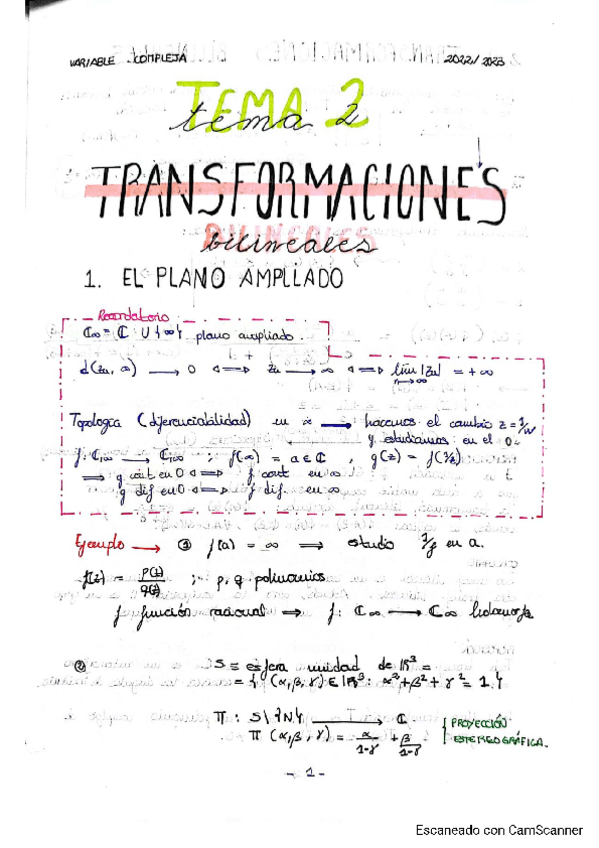 VARIABLE COMPLEJA 2022/2023
TEMA 2
tema 2
TRANSFORMACIONES
BILINEALES
bilineales
1. EL PLANO AMPLIADO
Recordatorio
ℂ∞ = ℂ ∪ {∞} plano ampliado.
d(zn, ∞) → 0 ⟺ zn → ∞ ⟺ lim |zn| = +∞
n→∞
Topología (diferenciabilidad) en ∞ → hacemos el cambio z = 1/w
y estudiamos en el 0.
f: ℂ∞ → ℂ∞ ; f(∞) = a ∈ ℂ , g(z) = f(1/z)
⟹ g cont en 0 ⟺ f cont en ∞
g dif en 0 ⟺ f dif. en ∞
Ejemplo → ① f(a) = ∞ ⟹ estudio 1/f en a.
f(z) = p(z)/q(z) ; p, q polinomios
f función racional ⟹ f: ℂ∞ → ℂ∞ holomorfa
② S ≡ esfera unidad de ℝ³ =
= { (α, β, γ) ∈ ℝ³: α² + β² + γ² = 1 }
π : S\{N} → ℂ
π (α, β, γ) = α/1-γ + β/1-γ
PROYECCIÓN
ESTEREOGRÁFICA.
- 1 -
Escaneado con CamScanner